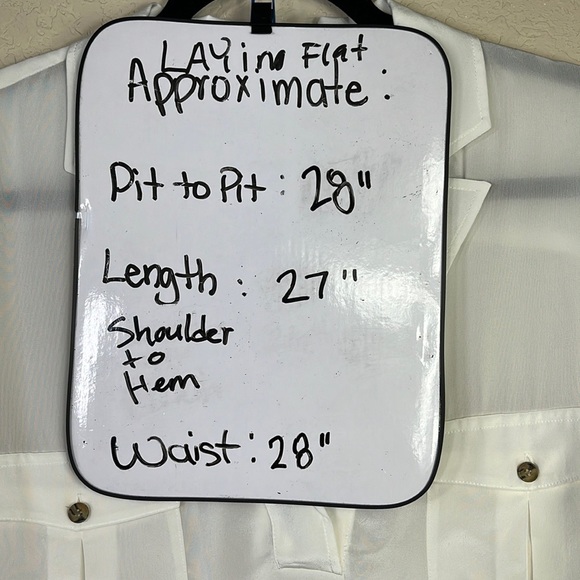 LAYing Flat
Approximate:
Pit to Pit: 28"
Length: 27"
Shoulder
to
Hem
Waist: 28"